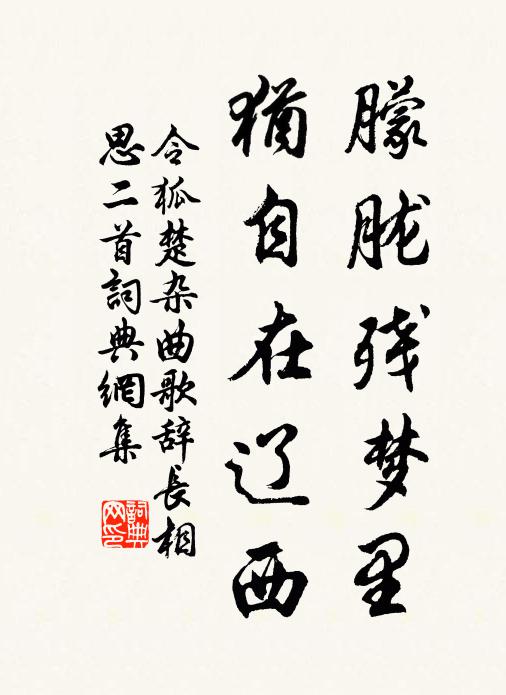 朦胧残梦里
犹自在辽西
令狐楚杂曲歌辞长相
思二首詞典網集
詞典
网印